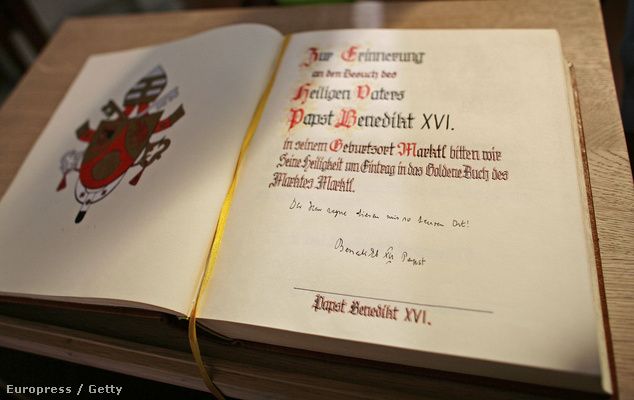 Zur Erinnerung
an den Besuch des
Heiligen Vaters
Papst Benedikt XVI.
in seinem Geburtsort Marktl bitten wir
Seine Heiligkeit um Eintrag in das Goldene Buch des
Marktes Marktl.
Der Herr segne diesen mir so teuren Ort!
Benedikt XVI Papst
Papst Benedikt XVI.
Europress / Getty